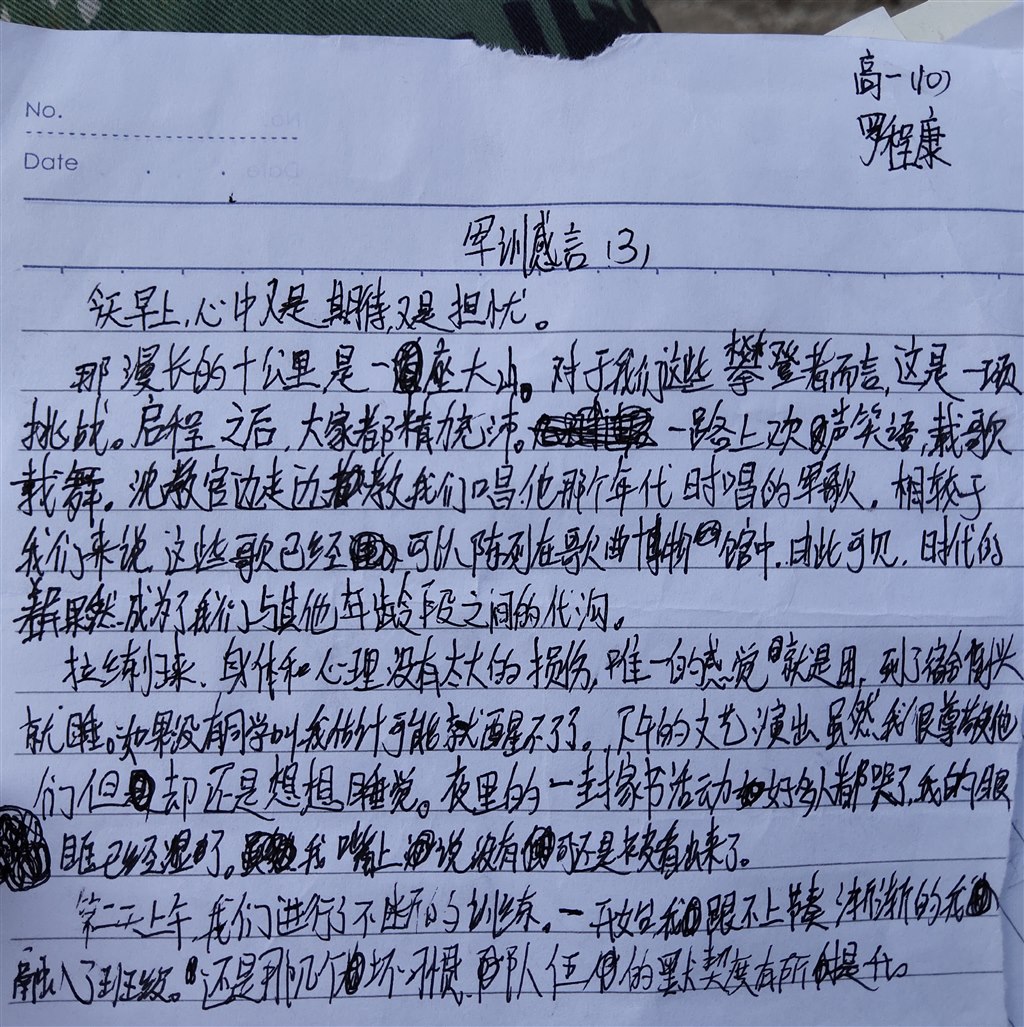 高一(10)
No.
罗程康
Date
军训感言(3)
今天早上,心中又是期待,又是担忧。
那漫长的十公里是一座大山。对于我们这些攀登者而言,这是一项
挑战。启程之后,大家都精力充沛。一路上欢声笑语,载歌
载舞。沈教官边走边教我们唱他那个年代时唱的军歌。相较于
我们来说,这些歌已经可以陈列在歌曲博物馆中。由此可见,时代的
果然成为了我们与其他年龄段之间的代沟。
拉练归来、身体和心理没有太大的损伤,唯一的感觉就是困,到了宿舍倒头
就睡。如果没有同学叫我估计可能就醒不了了。下午的文艺演出虽然我很尊敬他
们但却还是想想睡觉。夜里的一封家书活动好多人都哭了,我的眼
眶已经湿了。我嘴上说没有可还是被看出来了。
第二天上午,我们进行了不断的训练。一开始我跟不上节奏渐渐的我
融入了班级。还是那几个坏习惯,队伍的默契度有所提升。